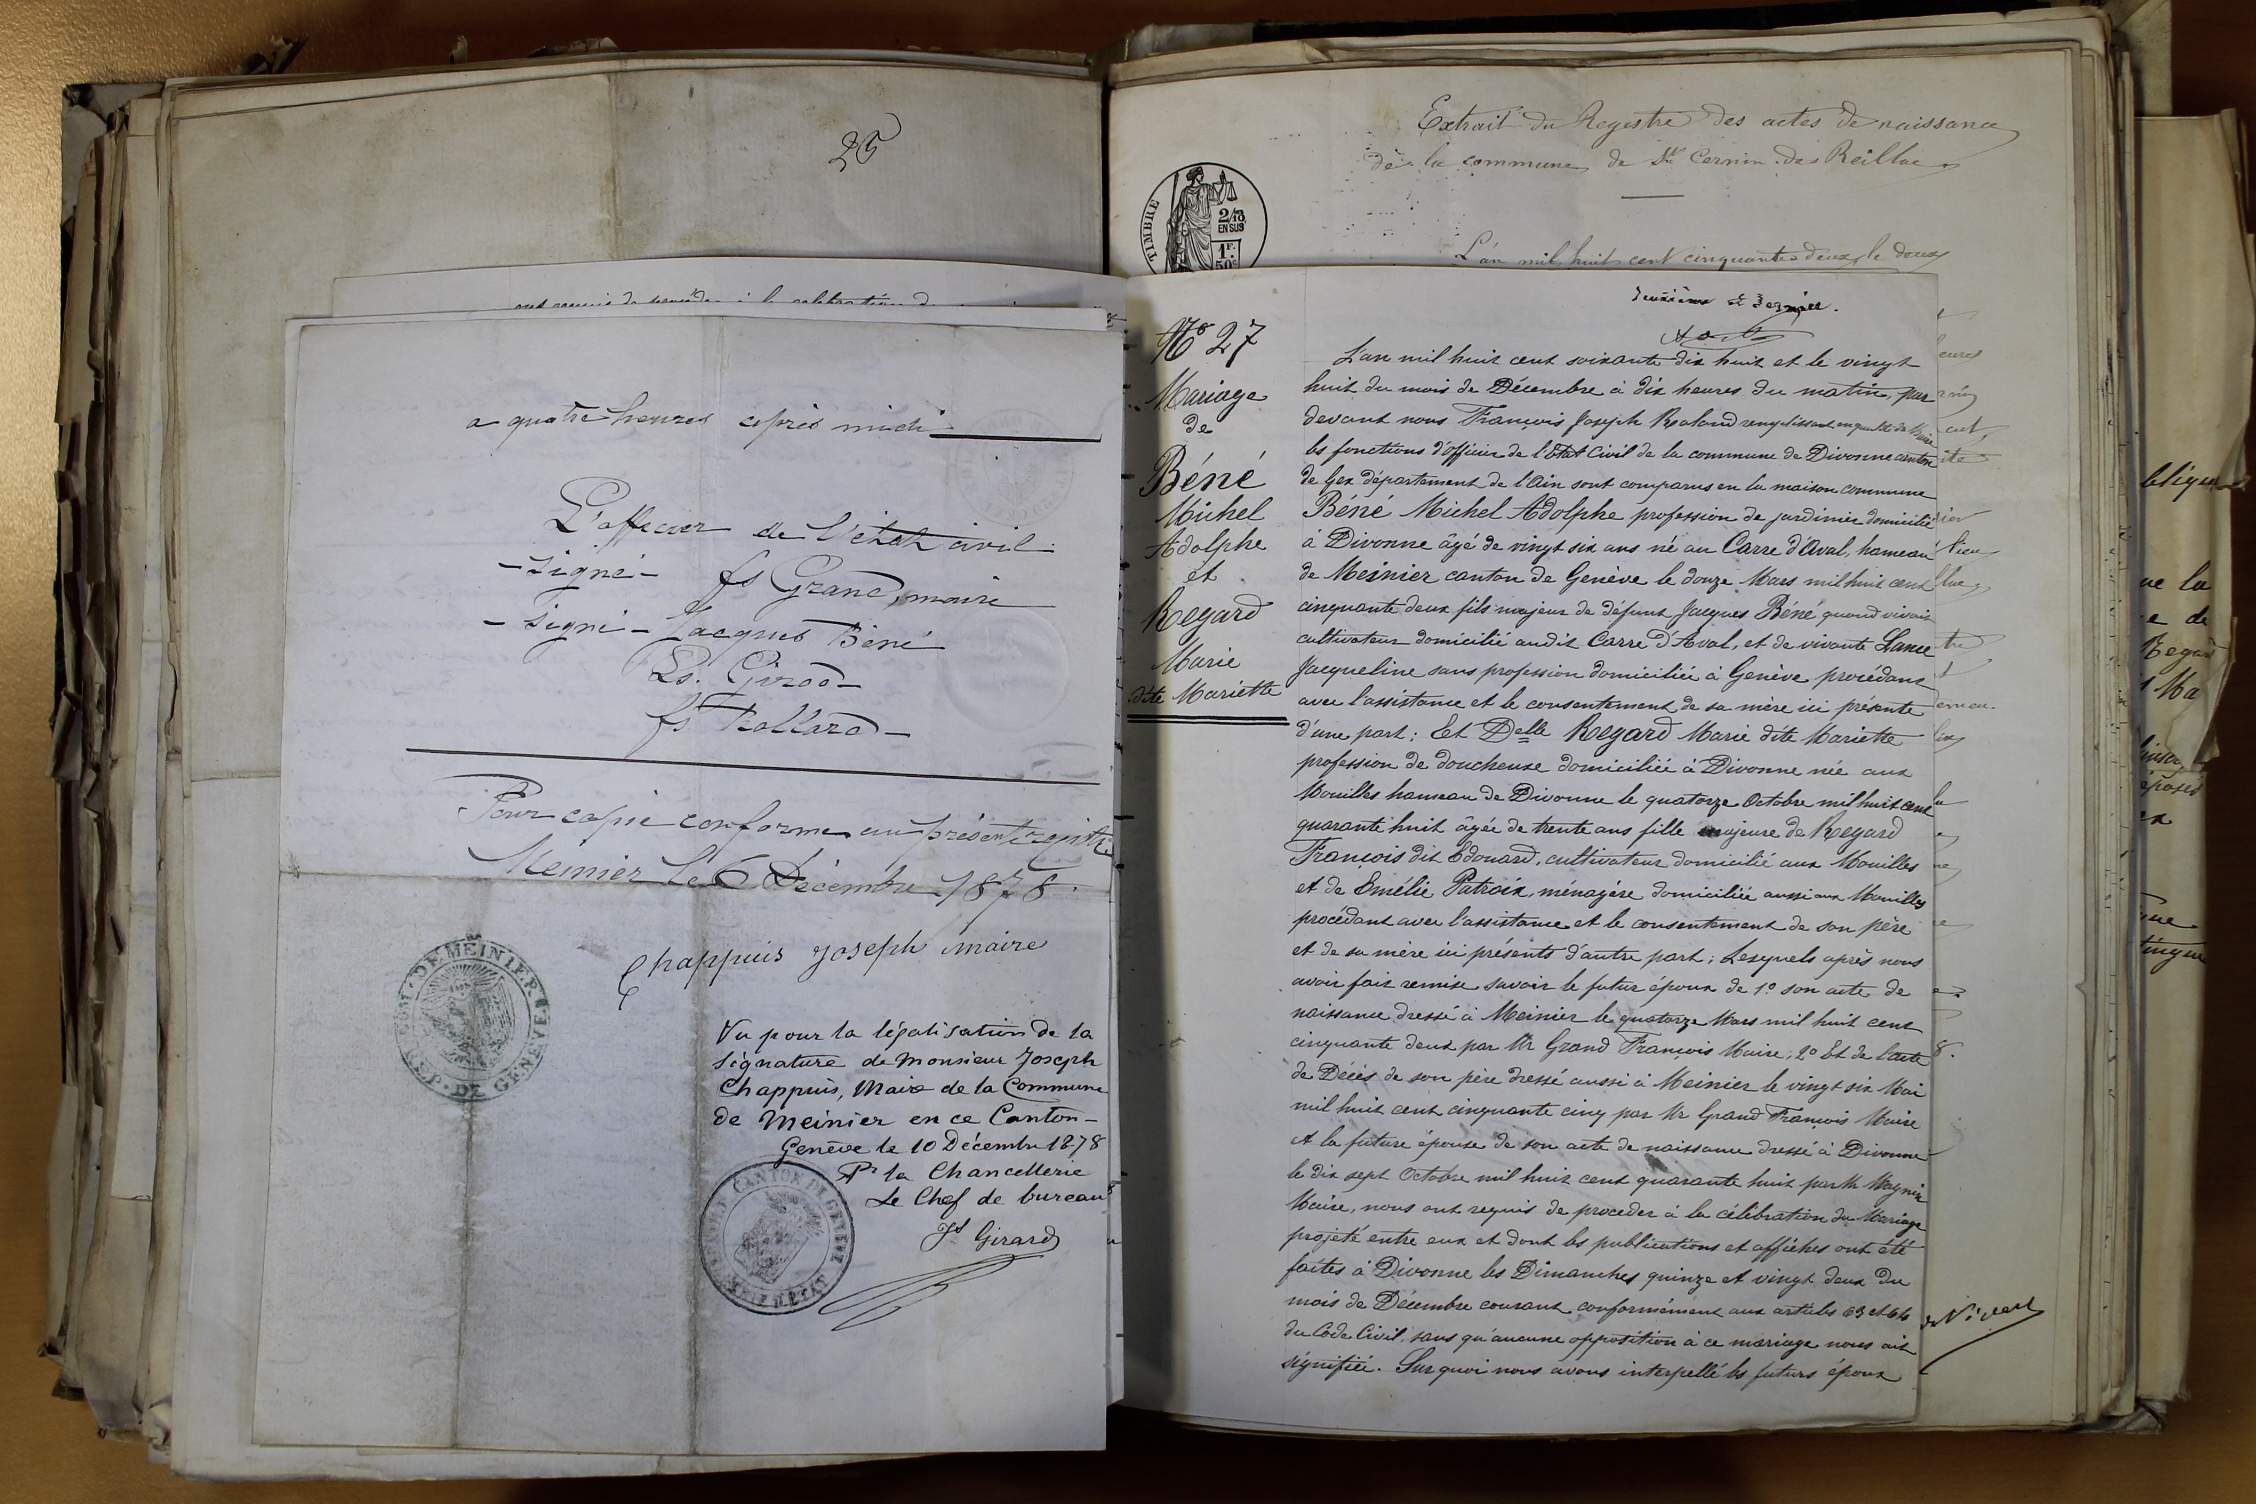 25
a quatre heures après midi
L'officier de l'état civil.
- Signé - fs Grand, maire
- Signé - Jacques Béné
Ls. Girod -
fs Rollard -
Pour copie conforme au présent registre
Meinier le 6 Décembre 1878.
Chappuis Joseph maire
DE MEINIER
REP. DE GENEVE
Vu pour la légalisation de la
signature de Monsieur Joseph
Chappuis, Maire de la Commune
de Meinier en ce Canton -
Genève le 10 Décembre 1878
Pr la Chancellerie
Le Chef de bureau
Js Girard
CANTON DE GENEVE
Extrait du Registre des actes de naissance
de la commune de St Cernin de Reillac
TIMBRE
2/10
EN SUS
1F.
50c
L'an mil huit cent cinquante deux le douze
deuxième et dernier.
No 27
Mariage
de
Béné
Michel
Adolphe
et
Regard
Marie
dite Mariette
L'an mil huit cent soixante dix huit et le vingt
huit du mois de Décembre à dix heures du matin, par
devant nous François Joseph Roland remplissant en qualité de Maire
les fonctions d'officier de l'Etat Civil de la commune de Divonne canton
de Gex département de l'Ain sont comparus en la maison commune
Béné Michel Adolphe profession de jardinier domicilié
à Divonne âgé de vingt six ans né au Carre d'Aval, hameau
de Meinier canton de Genève le douze Mars mil huit cent
cinquante deux fils majeur de défunt Jacques Béné quand vivait
cultivateur domicilié audit Carre d'Aval, et de vivante Lance
Jacqueline sans profession domiciliée à Genève procédant
avec l'assistance et le consentement de sa mère ici présente
d'une part; Et Delle Regard Marie dite Mariette
profession de doucheuse domiciliée à Divonne née aux
Mouilles hameau de Divonne le quatorze Octobre mil huit cent
quarante huit âgée de trente ans fille majeure de Regard
François dit Edouard, cultivateur domicilié aux Mouilles
et de Emélie Patroix, ménagère domiciliée aussi aux Mouilles
procédant avec l'assistance et le consentement de son père
et de sa mère ici présents d'autre part; Lesquels après nous
avoir fait remise savoir le futur époux de 1o son acte de
naissance dressé à Meinier le quatorze Mars mil huit cent
cinquante deux par Mr Grand François Maire; 2o Et de l'acte
de Décès de son père dressé aussi à Meinier le vingt six Mai
mil huit cent cinquante cinq par Mr Grand François Maire
et la future épouse de son acte de naissance dressé à Divonne
le dix sept Octobre mil huit cent quarante huit par Mr
Maire, nous ont requis de procéder à la célébration du Mariage
projeté entre eux et dont les publications et affiches ont été
faites à Divonne les Dimanches quinze et vingt deux du
mois de Décembre courant conformément aux articles 63 et 64
du Code Civil, sans qu'aucune opposition à ce mariage nous ait
signifiée. Sur quoi nous avons interpellé les futurs époux